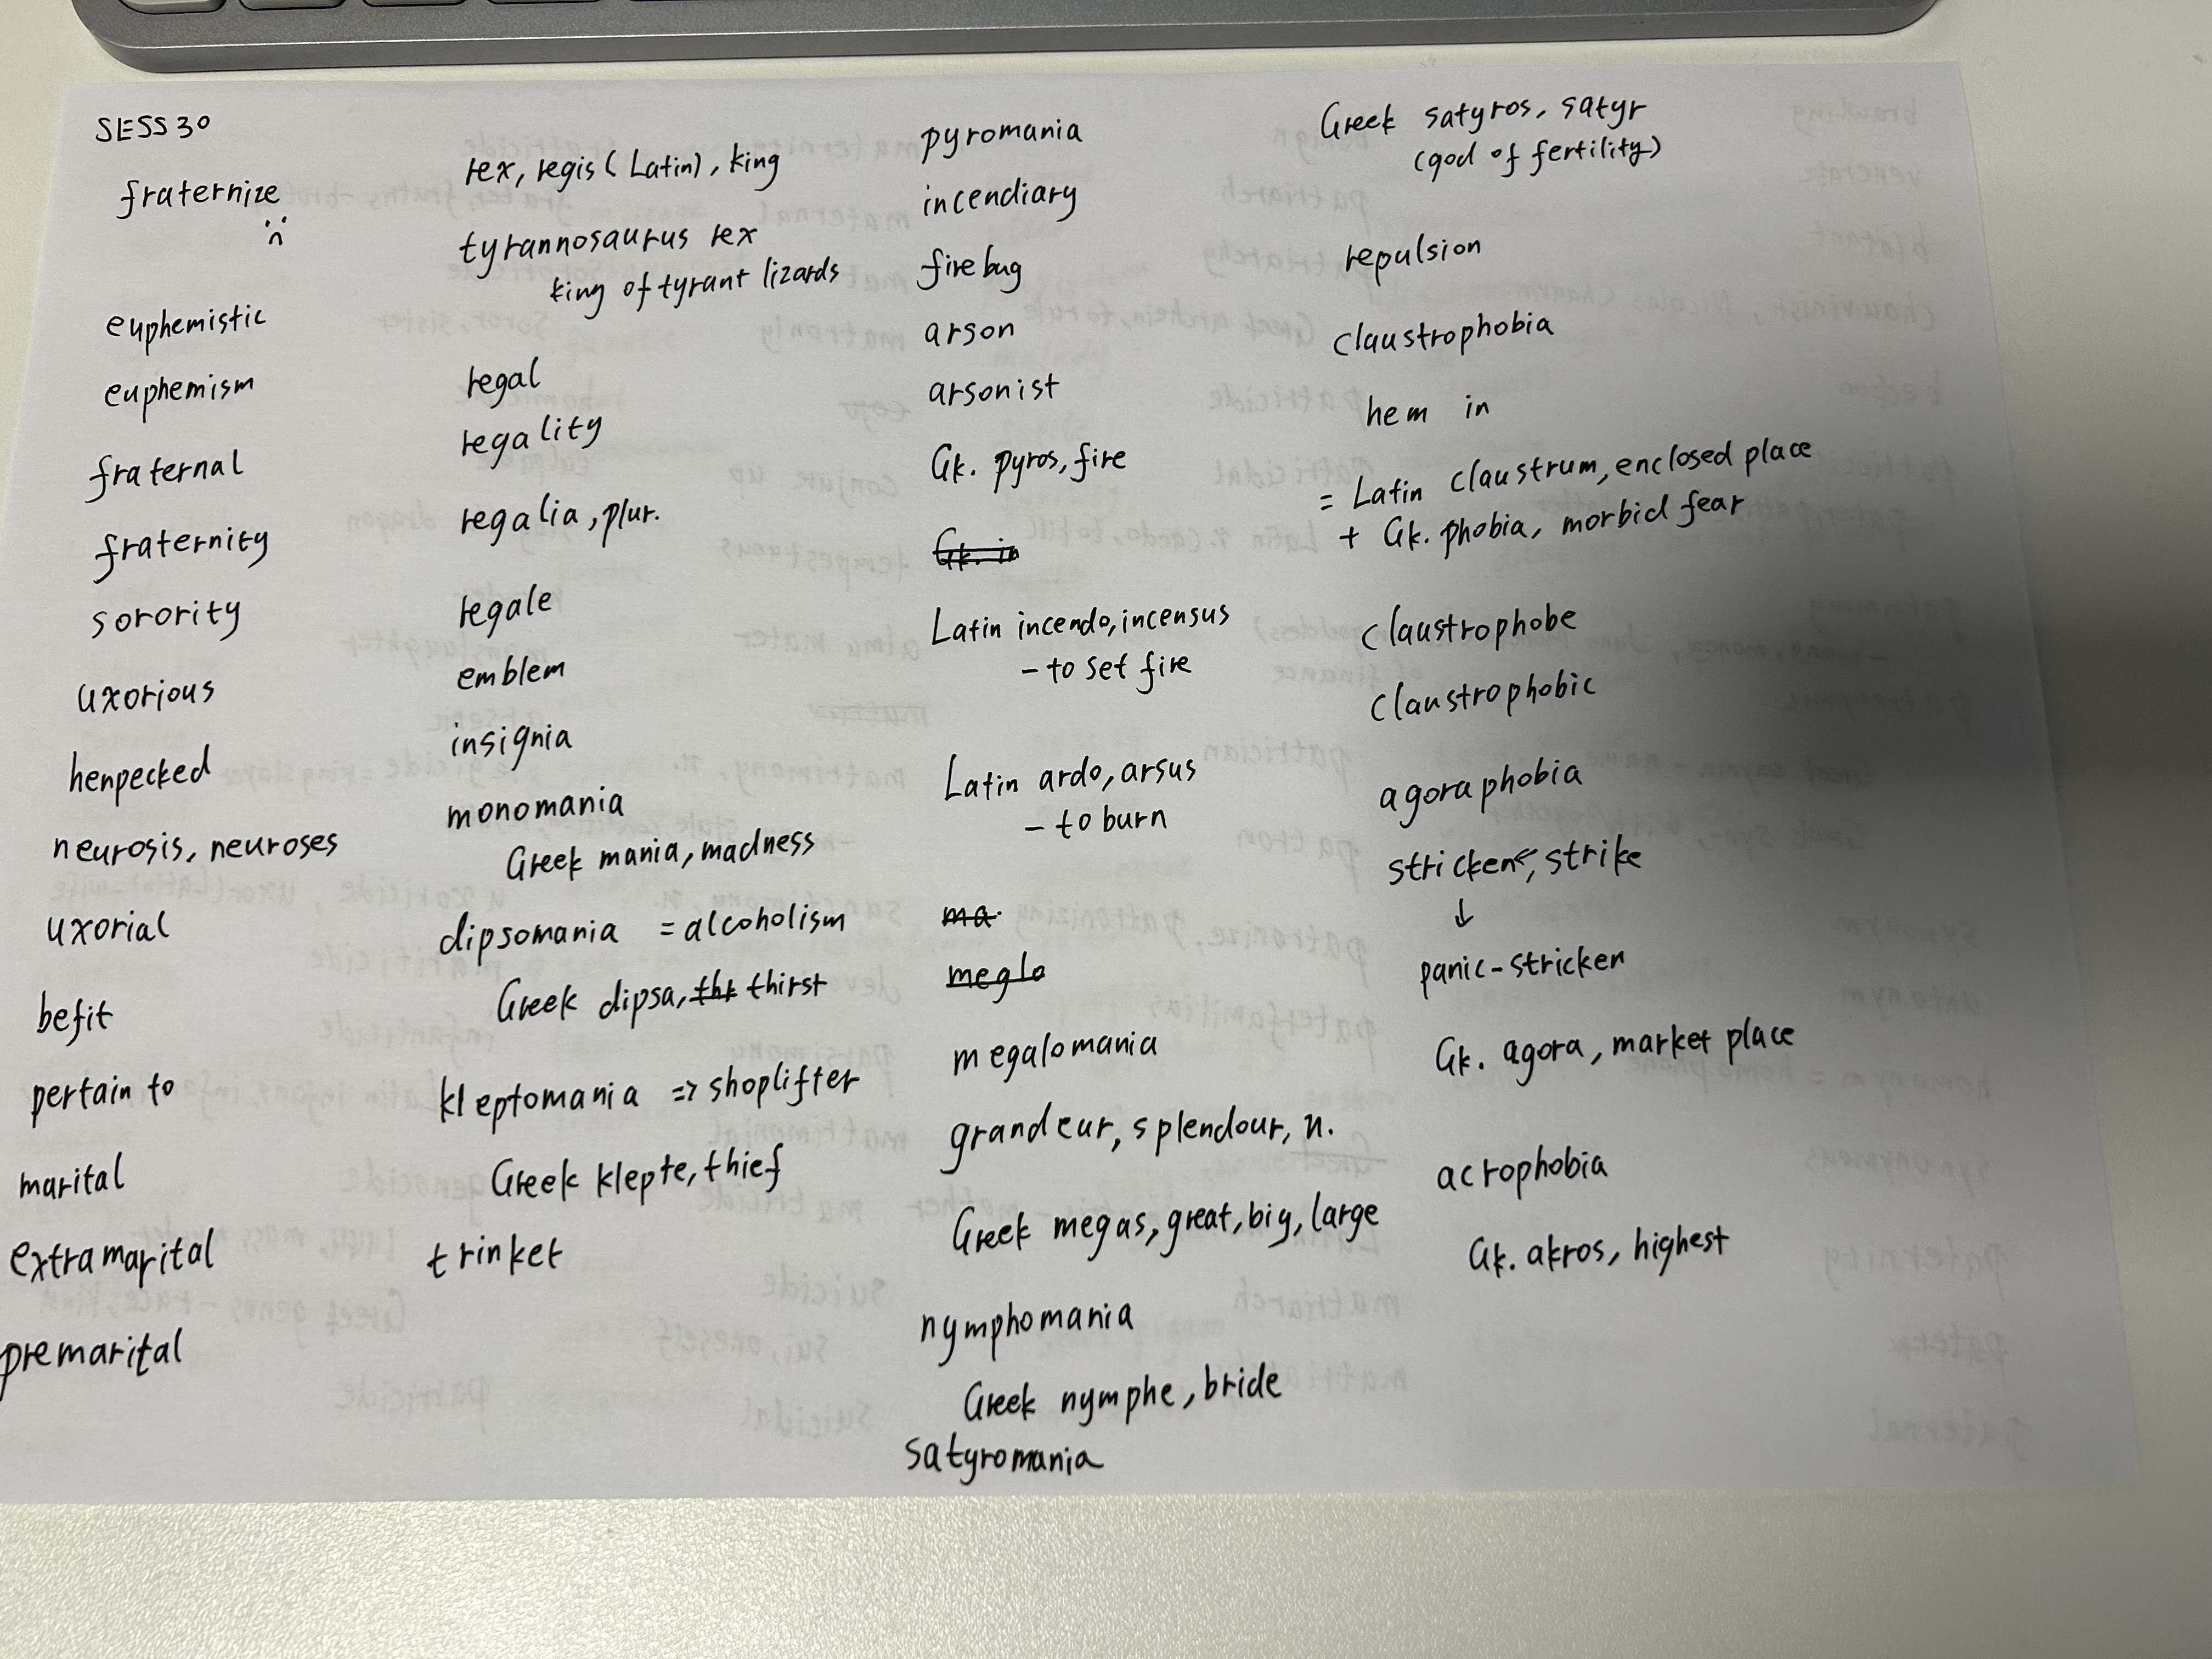 SESS 30
fraternize
euphemistic
euphemism
fraternal
fraternity
sorority
uxorious
henpecked
neurosis, neuroses
uxorial
befit
pertain to
marital
extramarital
premarital
rex, regis (Latin), king
tyrannosaurus rex
king of tyrant lizards
regal
regality
regalia, plur.
regale
emblem
insignia
monomania
Greek mania, madness
dipsomania = alcoholism
Greek dipsa, thr thirst
kleptomania => shoplifter
Greek klepte, thief
trinket
pyromania
incendiary
firebug
arson
arsonist
Gk. pyros, fire
Gk. in
Latin incendo, incensus
- to set fire
Latin ardo, arsus
- to burn
ma
meglo
megalomania
grandeur, splendour, n.
Greek megas, great, big, large
nymphomania
Greek nymphe, bride
satyromania
Greek satyros, satyr
(god of fertility)
repulsion
claustrophobia
hem in
= Latin claustrum, enclosed place
+ Gk. phobia, morbid fear
claustrophobe
claustrophobic
agoraphobia
stricken <, strike
↓
panic-stricken
Gk. agora, market place
acrophobia
Gk. akros, highest